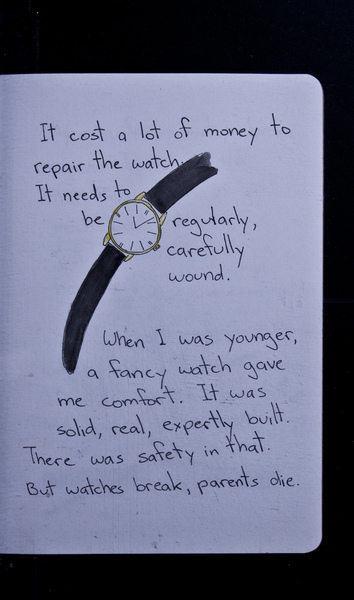 It cost a lot of money to
repair the watch.
It needs to
be regularly,
carefully
wound.
When I was younger,
a fancy watch gave
me comfort. It was
solid, real, expertly built.
There was safety in that.
But watches break, parents die.